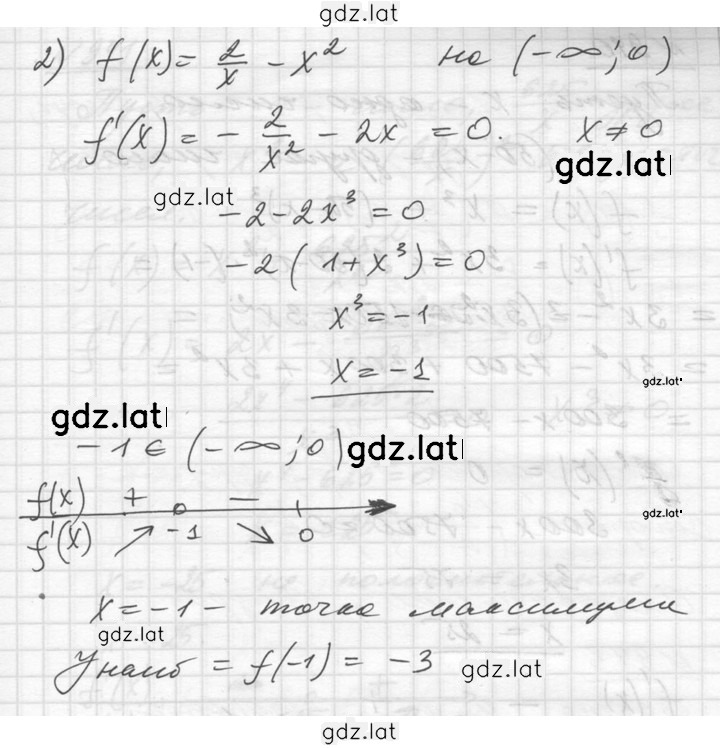 gdz.lat
2) f(x) = 2/x - x² на (-∞; 0)
f'(x) = - 2/x² - 2x = 0. x ≠ 0
gdz.lat
gdz.lat
-2 - 2x³ = 0
-2(1 + x³) = 0
x³ = -1
x = -1
gdz.lat
gdz.lat
-1 ∈ (-∞; 0)
gdz.lat
f(x) + -
gdz.lat
f'(x) ↗ -1 ↘ 0
x = -1 - точка максимума
gdz.lat
Yнаиб = f(-1) = -3
gdz.lat
gdz.lat